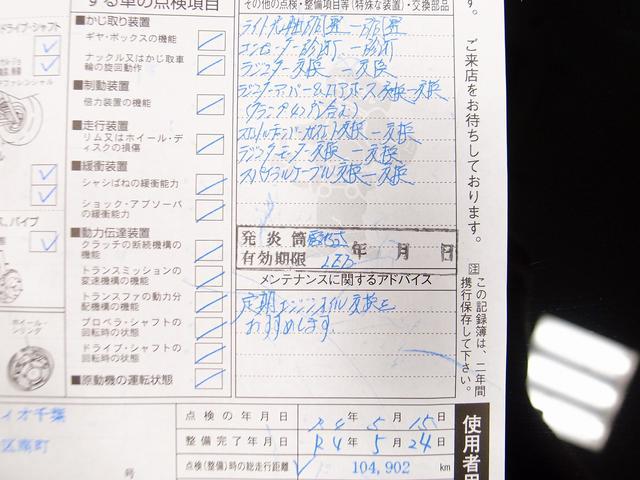 する車の点検項目
その他の点検・整備項目等(特殊な装置)・交換部品
ドライブ・シャフト
■かじ取り装置
ギヤ・ボックスの機能
ナックル又はかじ取車
輪の旋回動作
■制動装置
倍力装置の機能
■走行装置
リム又はホイール・デ
ィスクの損傷
■緩衝装置
シャシばねの緩衝能力
ショック・アブソーバ
の緩衝能力
■動力伝達装置
クラッチの断続機構の
機能
トランスミッションの
変速機構の機能
トランスファの動力分
配機構の機能
プロペラ・シャフトの
回転時の状態
ドライブ・シャフトの
回転時の状態
■原動機の運転状態
ス、パイプ
ホイール・
シリンダ
コンピューター診断 ー 診断
ラジエター交換 ー 交換
ラジエターアッパー&ロアホース交換ー交換
ラジエターモーター交換 ー 交換
スパイラルケーブル交換 ー 交換
発炎筒 年 月 日
有効期限 LED
メンテナンスに関するアドバイス
定期エンジンオイル交換を
お勧めします。
す。 ご来店をお待ちしております。
注 この記録簿は、二年間
携行保存して下さい。
イオ千葉
区南町
号
点検の年月日 R4年5月15日
整備完了年月日 R4年5月24日
点検(整備)時の総走行距離 104,902 km
使用者用